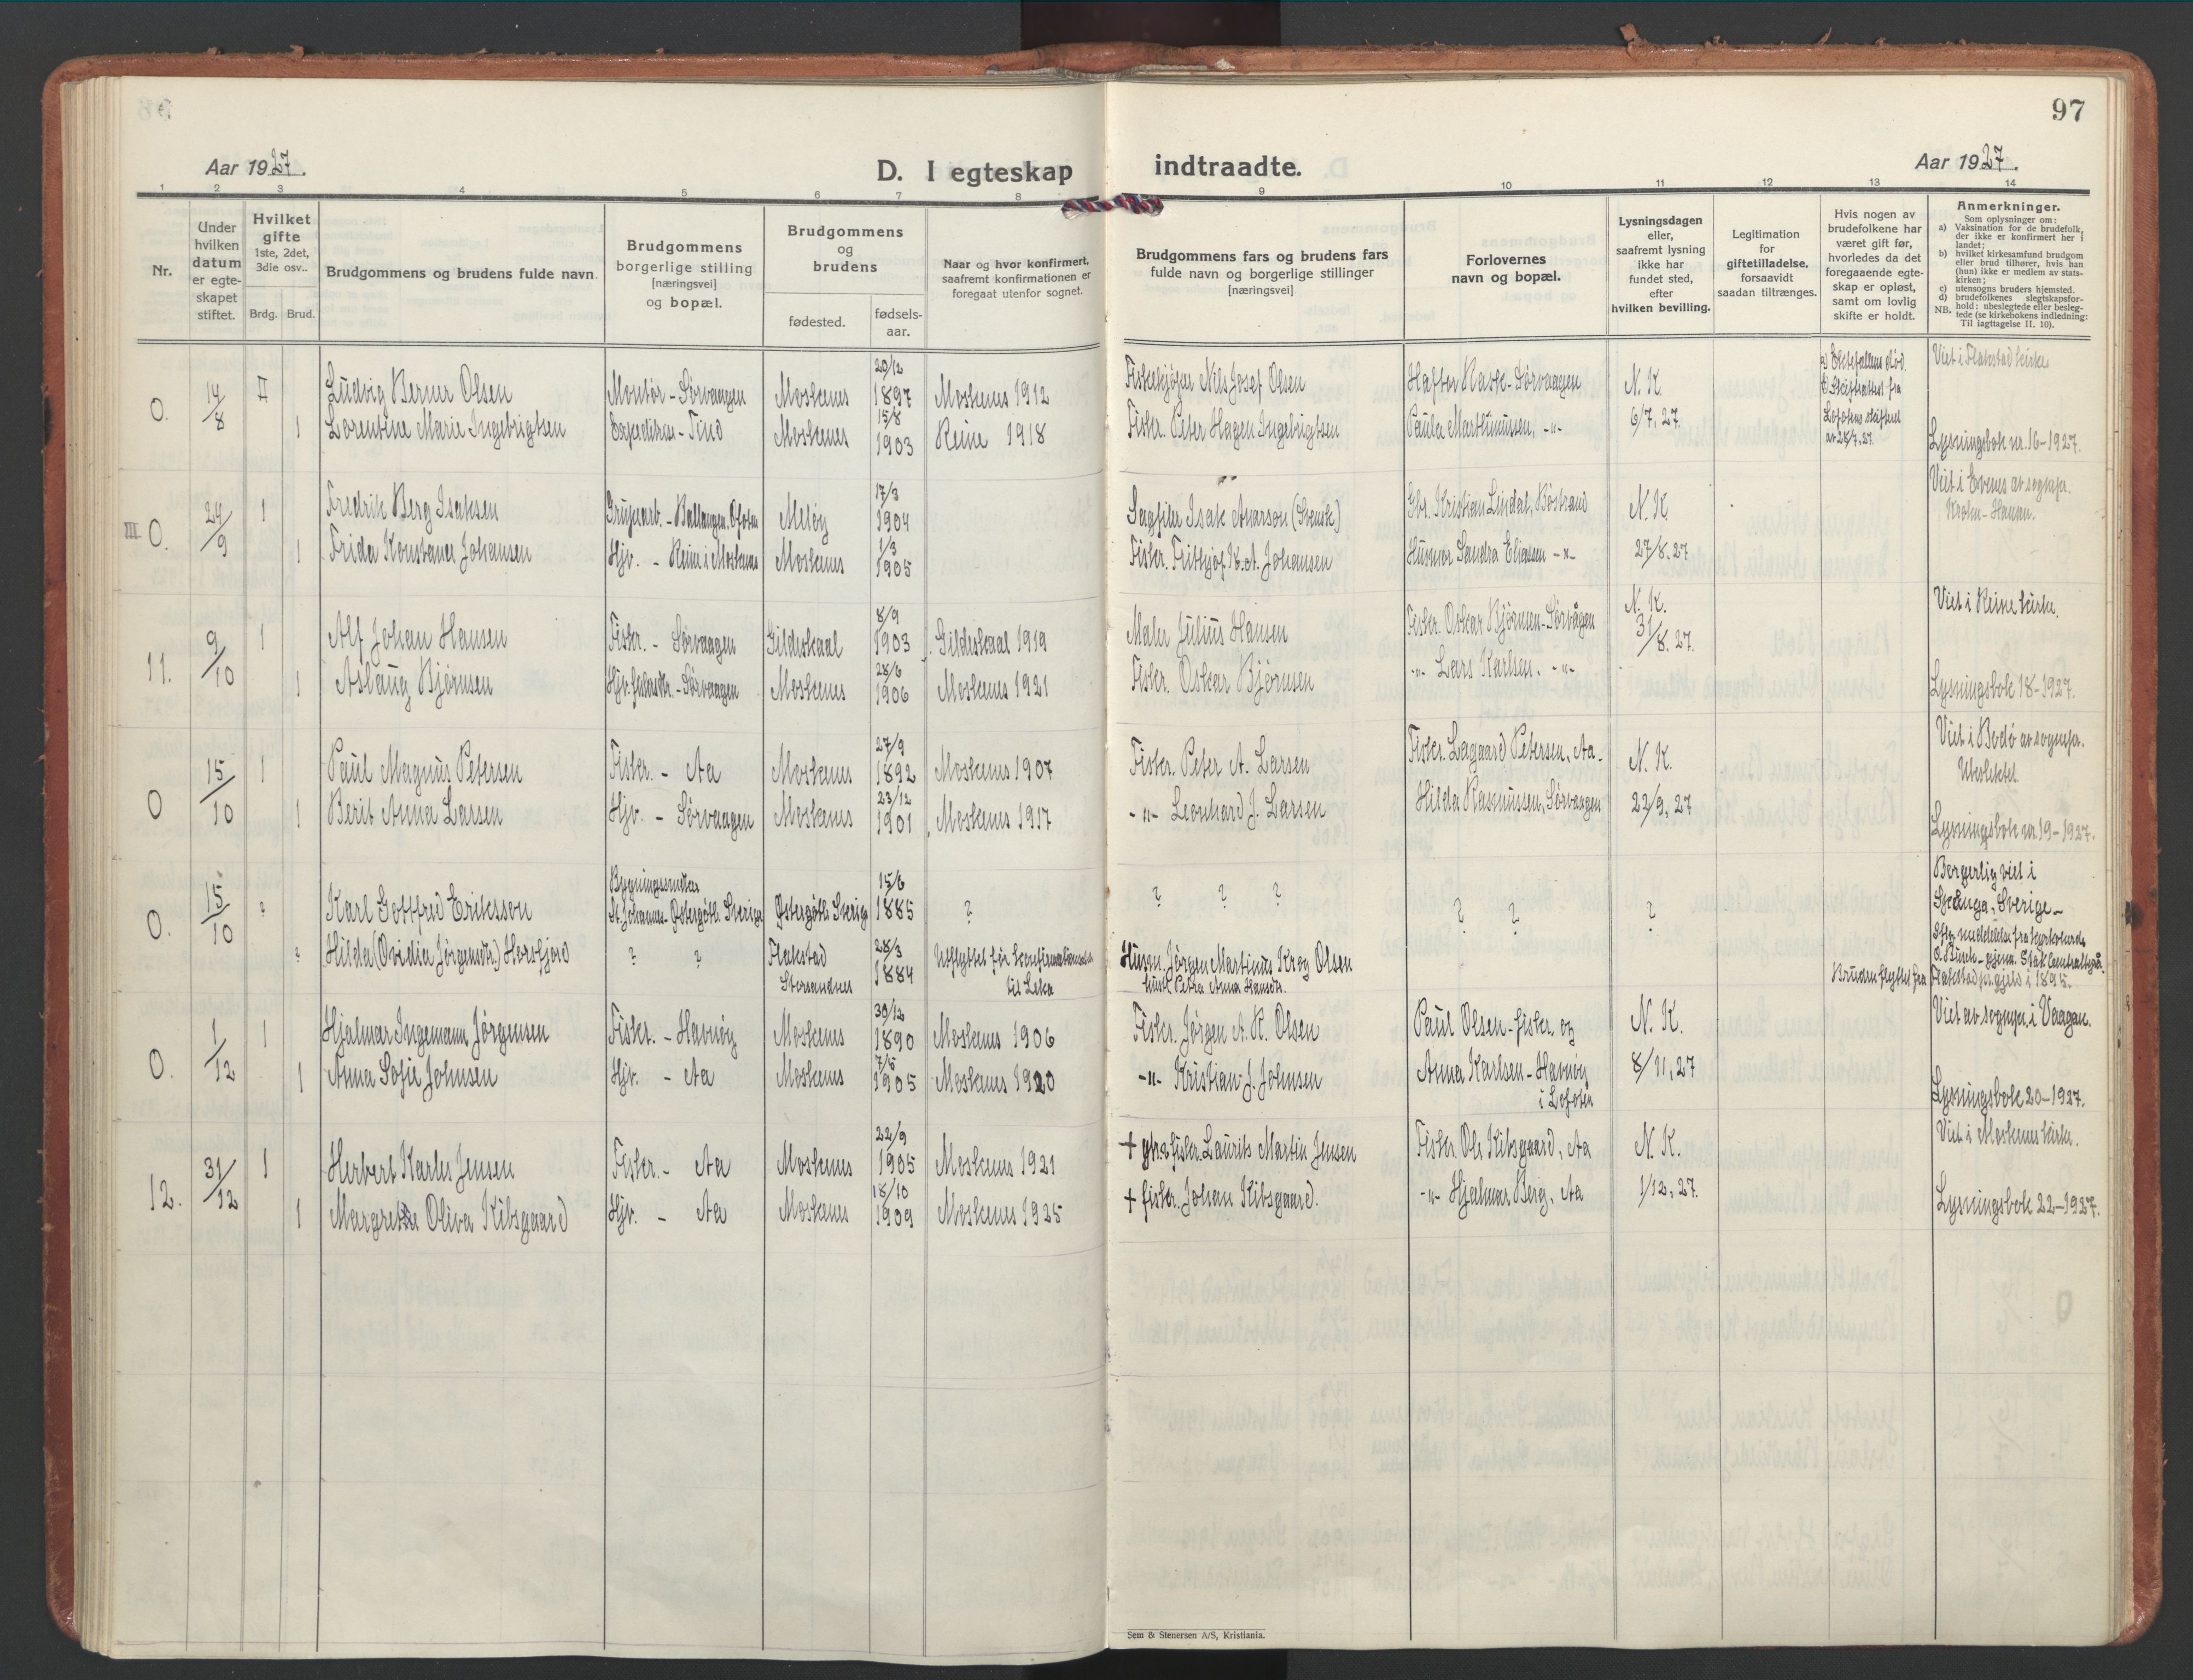 97
Aar 1927.
D. I egteskap indtraadte.
Aar 1927.
1 2 3 4 5 6 7 8 9 10 11 12 13 14
Nr.
Under hvilken datum er egteskapet stiftet.
Hvilket gifte 1ste, 2det, 3die osv..
Brdg. Brud.
Brudgommens og brudens fulde navn.
Brudgommens borgerlige stilling [næringsvei] og bopæl.
Brudgommens og brudens
fødested.
fødselsaar.
Naar og hvor konfirmert, saafremt konfirmationen er foregaat utenfor sognet.
Brudgommens fars og brudens fars fulde navn og borgerlige stillinger [næringsvei]
Forlovernes navn og bopæl.
Lysningsdagen eller, saafremt lysning ikke har fundet sted, efter hvilken bevilling.
Legitimation for giftetilladelse, forsaavidt saadan tiltrænges.
Hvis nogen av brudefolkene har været gift før, hvorledes da det foregaaende egteskap er opløst, samt om lovlig skifte er holdt.
Anmerkninger.
Som oplysninger om:
a) Vaksination for de brudefolk, der ikke er konfirmert her i landet;
b) hvilket kirkesamfund brudgom eller brud tilhører, hvis han (hun) ikke er medlem av statskirken;
c) utensogns bruders hjemsted.
d) brudefolkenes slegtskapsforhold: ubeslegtede eller beslegtede (se kirkebokens indledning: Til iagttagelse II. 10).
NB.
0. 14/8 II Ludvig Berner Olsen Montør - Sørvaagen Moskenes 20/12 1897 Moskenes 1912 Fiskekjøper Nils Josef Olsen Hafton Rask - Sørvaagen N. K. Viet i Flakstad kirke
1 Lorentine Marie Ingebrigtsen - Tind Moskenes 15/8 1903 Reine 1918 Fisker. Peter Hagen Ingebrigtsen Paula Marthinussen, -"- 6/7. 27. Lysningsbok nr. 16-1927.
III 0. 24/9 1 Fredrik Berg Isaksen Grubearb. - Ballangen, Ofoten Meløy 17/3 1904 Sagfiler Isak Avarson (Svensk) Gbr. Kristian Lindal, Bøstrand N. K. Viet i Evenes av sognepr. Krohn-Hansen.
1 Frida Konstanse Johansen Hjv. - Reine i Moskenes Moskenes 1/3 1905 Fisker. Frithjof K. A. Johansen Husmor Sandra Eliasen -"- 27/8. 27
11. 9/10 1 Alf Johan Hansen Fisker. - Sørvaagen Gildeskaal 8/9 1903 Gildeskaal 1919 Maler Julius Hansen Fisker. Oskar Bjørnsen - Sørvågen N. K. 31/8. 27. Viet i Reine kirke.
1 Aslaug Bjørnsen - Sørvaagen Moskenes 28/6 1906 Moskenes 1921 Fisker. Oskar Bjørnsen -"- Lars Karlsen. -"- Lysningsbok 18-1927.
0 15/10 1 Paul Magnus Petersen Fisker. - Aa Moskenes 27/9 1892 Moskenes 1907 Fisker. Peter A. Larsen Fisker. Lagaard Petersen, Aa - N. K. Viet i Bodø av sognepr.
1 Berit Anna Larsen Hjv. - Sørvaagen Moskenes 23/12 1901 Moskenes 1917 -"- Leonhard J. Larsen Hilda Rasmussen, Sørvaagen 22/9. 27 Lysningsbok nr. 19-1927.
0. 15/10 ? Karl Gottfred Eriksson St. Johannes - Østergøtl. Sverige Østergøtl. Sverige 15/6 1885 ? ? ? ? ? ? ? Borgerlig viet i Skeninge, Sverige -
? Hilda (Ovidia Jørgensdtr.) Horsfjord ? ? Flakstad Storsandnes 28/3 1884 Utflyttet før konfirmationen til Leka Husm. Jørgen Martinus Krog Olsen hust. Petra Anna Hansdtr. Bruden flyttet fra Flakstad pr.gjeld i 1895.
0. 1/12 1 Hjalmar Ingemann Jørgensen Fisker. - Havnøy Moskenes 30/12 1890 Moskenes 1906 Fisker. Jørgen A. K. Olsen Paul Olsen - fisker. og N. K. Viet av sognepr. i Vaagan.
1 Anna Sofie Johnsen Hjv. - Aa Moskenes 7/5 1905 Moskenes 1920 -"- Kristian J. Johnsen Anna Karlsen - Havnøy i Lofoten 8/11. 27 Lysningsbok 20-1927.
12. 31/12 1 Herbert Karles Jensen Fisker. - Aa Moskenes 22/9 1905 Moskenes 1921 + fisker. Laurits Martin Jensen Fisker. Ole Kibsgaard, Aa N. K. Viet i Moskenes kirke.
1 Margrethe Oliva Kibsgaard Hjv. - Aa Moskenes 18/10 1909 Moskenes 1925 + fisker. Johan Kibsgaard. -"- Hjalmar Berg, Aa 1/12. 27. Lysningsbok 22-1927.
Sem & Stenersen A/S, Kristiania.